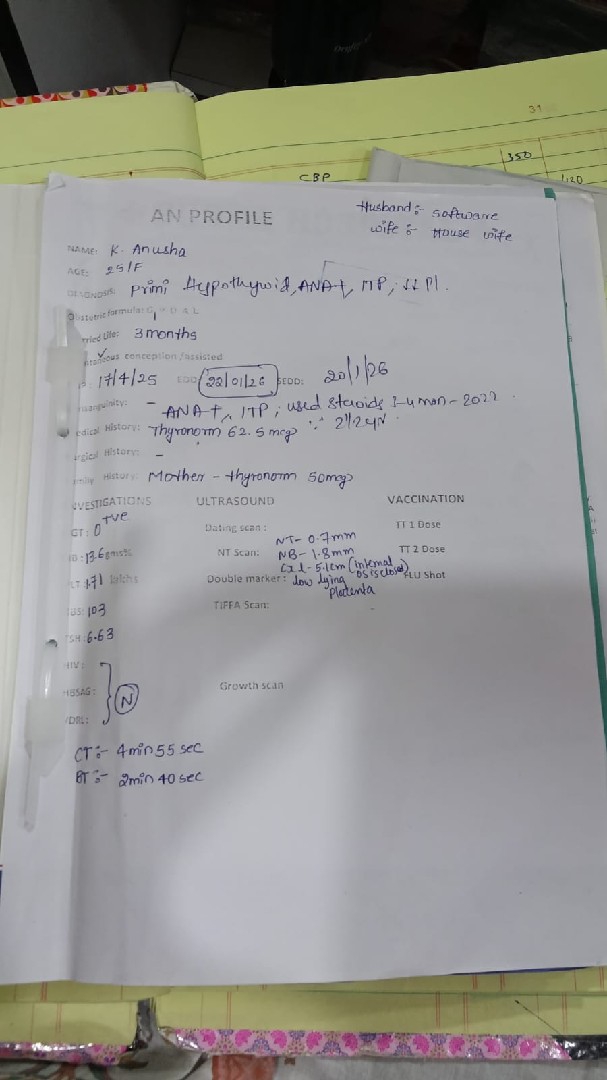 31
350
CBP
120
AN PROFILE
Husband:- software
wife:- House wife
NAME: K. Anusha
AGE: 25/F
DIAGNOSIS: Primi Hypothyroid, ANA+, ITP,
Obstetric formula: G P D A L
rried Life: 3 months
conception /assisted
: 17/4/25 EDD 22/01/26 SEDD: 20/1/26
nguinity: -
edical History: ANA+, ITP; used steroids 2022
Thyronorm 62.5 mcg
rgical History: -
mily History: Mother - thyronorm 50mcg
NVESTIGATIONS ULTRASOUND VACCINATION
GT: O +ve
Dating scan: TT 1 Dose
B: 13.6 gms% NT Scan: NT- 0.7mm TT 2 Dose
NB- 1.8mm
CxL- 5.1cm (internal os is closed)
LT: 1.71 lakhs Double marker: low lying placenta FLU Shot
BS: 103 TIFFA Scan:
TSH: 6.63
HIV:
HBSAG: } N Growth scan
VDRL:
CT:- 4min 55 sec
BT:- 2min 40 sec